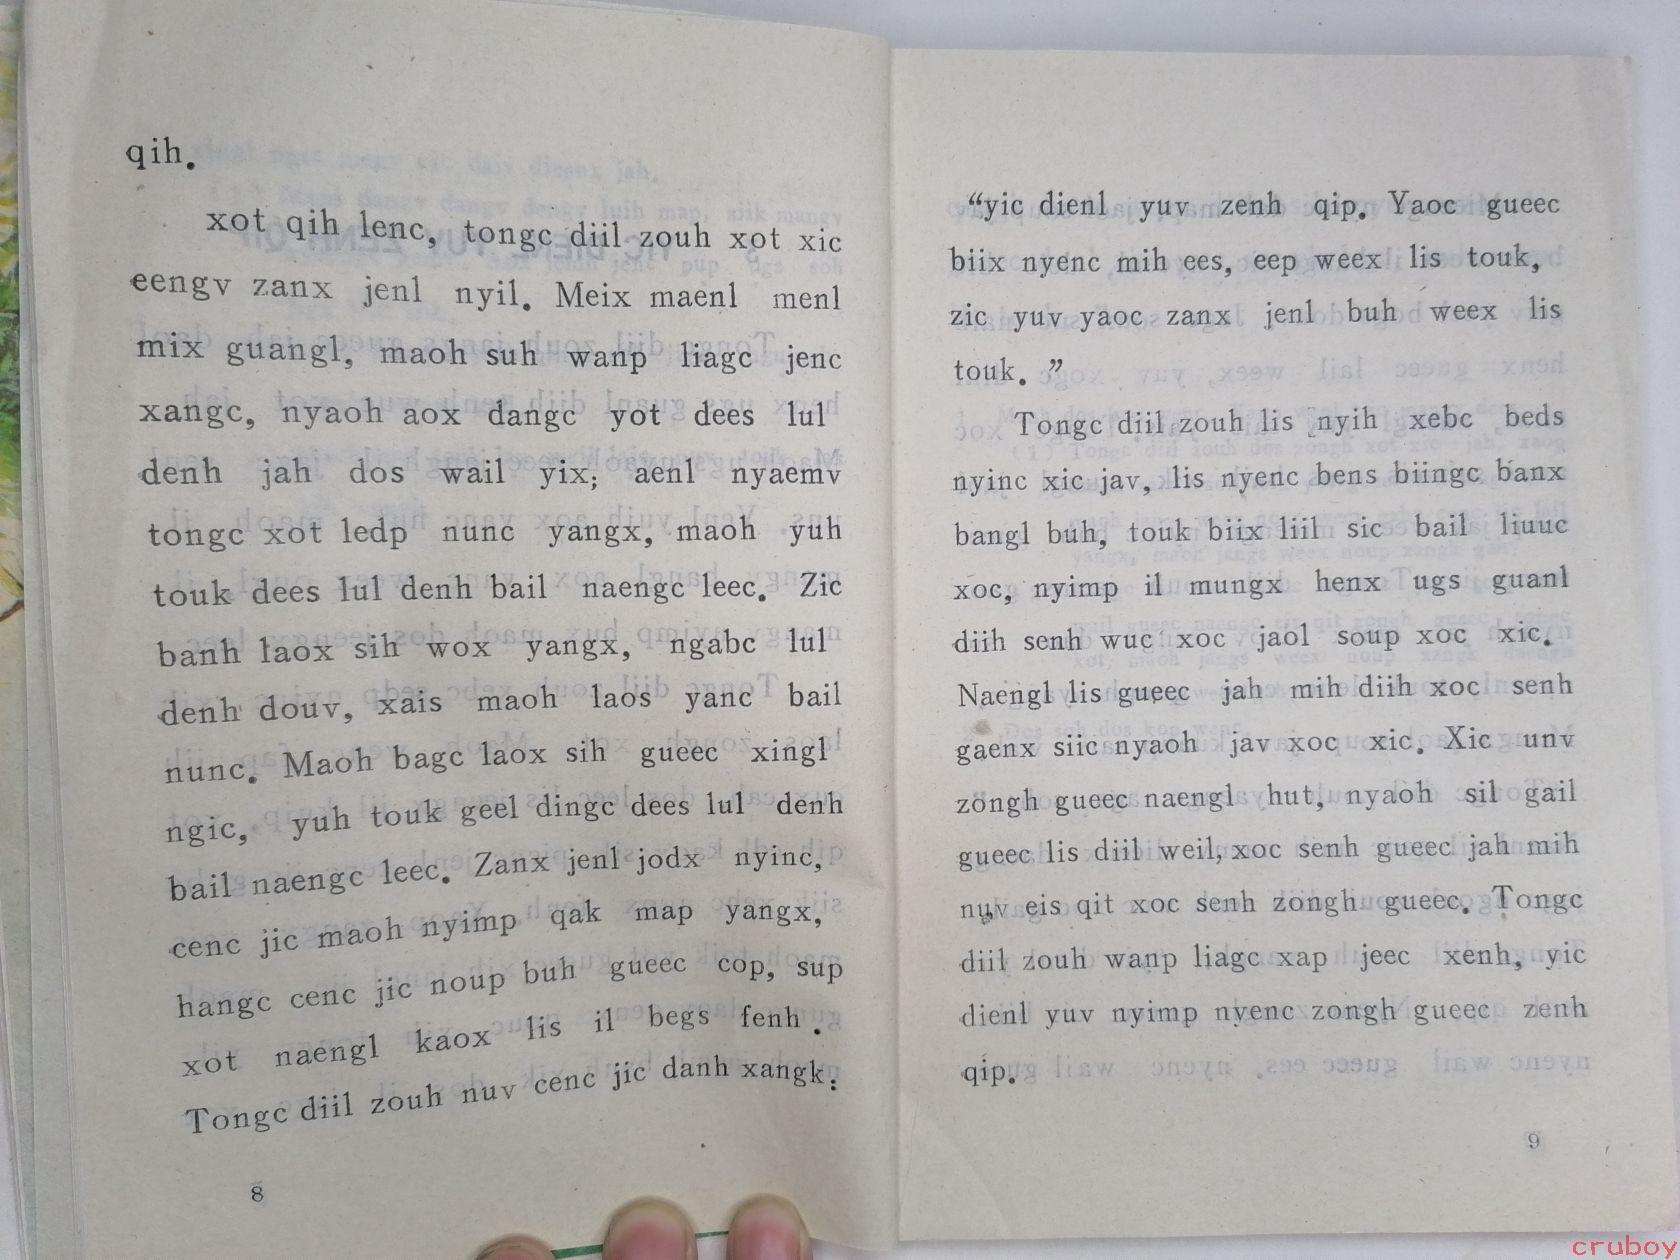 qih.
xot qih lenc, tongc diil zouh xot xic
eengv zanx jenl nyil. Meix maenl menl
mix guangl, maoh suh wanp liagc jenc
xangc, nyaoh aox dangc yot dees lul
denh jah dos wail yix; aenl nyaemv
tongc xot ledp nunc yangx, maoh yuh
touk dees lul denh bail naengc leec. Zic
banh laox sih wox yangx, ngabc lul
denh douv, xais maoh laos yanc bail
nunc. Maoh bagc laox sih gueec xingl
ngic, yuh touk geel dingc dees lul denh
bail naengc leec. Zanx jenl jodx nyinc,
cenc jic maoh nyimp qak map yangx,
hangc cenc jic noup buh gueec cop, sup
xot naengl kaox lis il begs fenh.
Tongc diil zouh nuv cenc jic danh xangk:
8
“yic dienl yuv zenh qip. Yaoc gueec
biix nyenc mih ees, eep weex lis touk,
zic yuv yaoc zanx jenl buh weex lis
touk.”
Tongc diil zouh lis nyih xebc beds
nyinc xic jav, lis nyenc bens biingc banx
bangl buh, touk biix liil sic bail liuuc
xoc, nyimp il mungx henx ugs guanl
diih senh wuc xoc jaol soup xoc xic.
Naengl lis gueec jah mih diih xoc senh
gaenx siic nyaoh jav xoc xic. Xic unv
zongh gueec naengl hut, nyaoh sil gail
gueec lis diil weil, xoc senh gueec jah mih
nuv eis qit xoc senh zongh gueec. Tongc
diil zouh wanp liagc xap jeec xenh, yic
dienl yuv nyimp nyenc zongh gueec zenh
qip.
9
cruboy